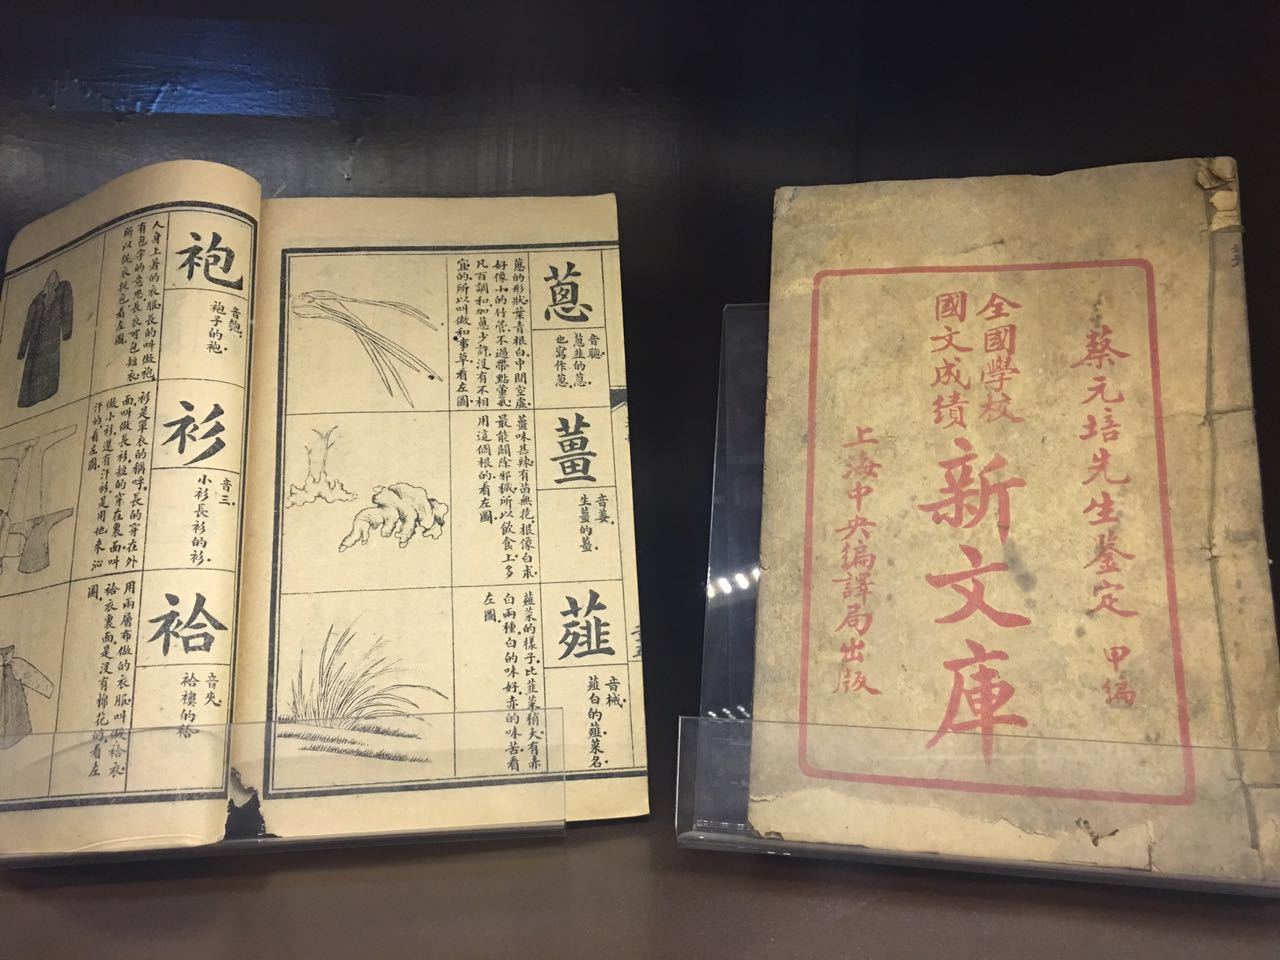 蔥
音聰.
蔥韭的蔥.
也寫作葱.
蔥的形狀.葉青根白.中間空虛.
好像小的竹管.不過帶點葷氣.
凡百調和.加蔥少許.沒有不相
宜的.所以叫做和事草.看左圖.
薑
音姜.
生薑的薑.
薑味甚辣.有苗無花.根像白朮.
最能闢除邪穢.所以飲食上.多
用這個根的.看左圖.
薤
音械.
薤白的薤.菜名.
薤菜的樣子.比韭菜稍大.有赤
白兩種.白的味好.赤的味苦.看
左圖.
袍
音匏.
袍子的袍.
人身上著的衣服.長的叫做袍.
有包字的意思.長衣可包短衣.
所以從衣從包.看左圖.
衫
音三.
小衫長衫的衫.
衫是單衣的稱呼.長的穿在外
面.叫做長衫.短的穿在裏面.叫
做小衫.還有汗衫.是用他來沁
汗的.看左圖.
袷
音夾.
袷襖的袷.
用兩層布做的衣服.叫做袷衣.
袷衣裏面.是沒有棉花的.看左
圖.
蔡元培先生鑒定 甲編
全國學校
國文成績
新文庫
上海中央編譯局出版